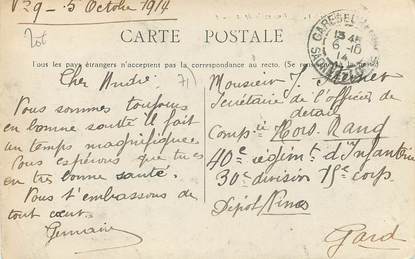 V 29 - 5 Octobre 1914
CARTE POSTALE
Tous les pays étrangers n'acceptent pas la correspondance au recto. (Se
Cher André
Nous sommes toujours
en bonne santé il fait
un temps magnifique
Nous espérons que tu es
en très bonne santé.
Nous t'embrassons de
tout cœur.
Germaine
Monsieur J.
Secrétaire de l'officier de
détails
Comp ie Hors Rang
40e régim t d'Infanterie
30e division 15e corps
Dépôt Nîmes
Gard